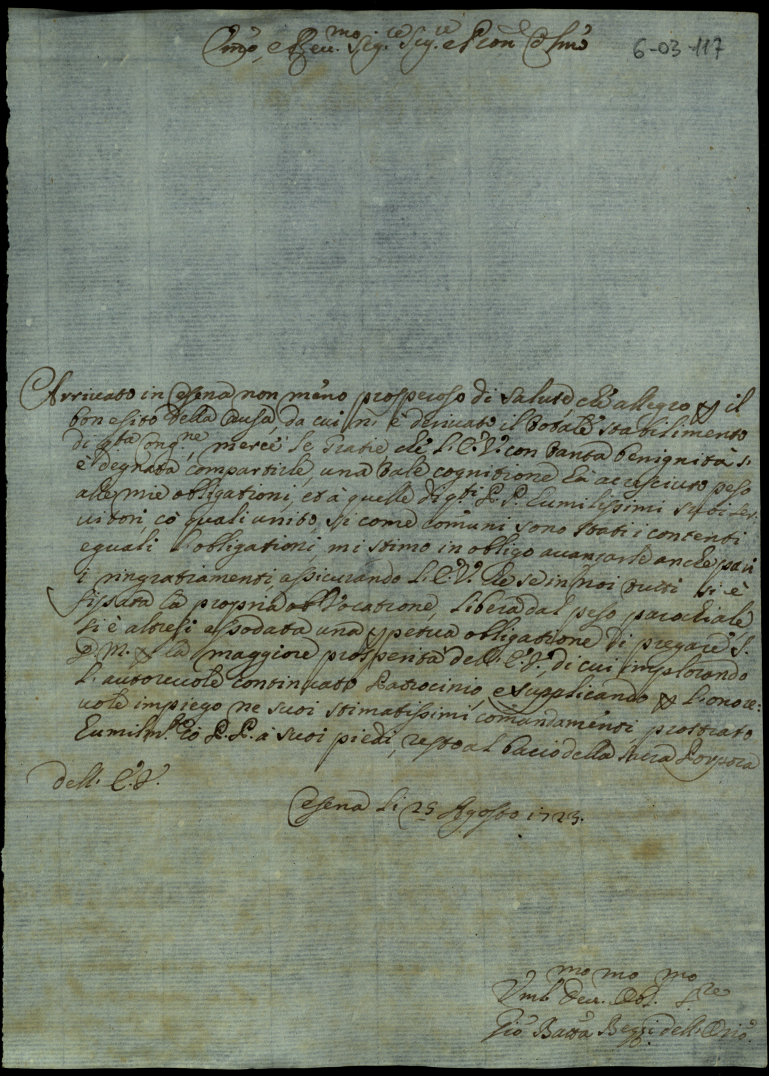 Emo, e Reu.mo Sig.re Sig.re e Pron Colmo
6-03-117
Arriuato in Cesena non meno prosperoso di salute, che allegro p il
bon esito della Causa, da cui n'è deriuato il totale stabilimento
di q.ta mg.ne, mercè le gratie che L'E.V. con tanta benignità s'
è degnata compartirle, una tale cognitione hà accresciuto peso
alle mie obligationi, et à quelle di q.ti P.P. Eumilissimi suoi ser-
uitori, co quali unito, si come comuni sono stati i contenti
eguali l'obligationi, mi stimo in obligo auanzarle anche pari
i ringratiamenti, assicurando L'E.V. che se in noi tutti si è
fissata la propria Vocatione, libera dal peso parochiale
si è altresi assodata una ppetua obligatione di pregare S.
D.M. p la maggiore prosperità dell'E.V., di cui implorando
l'autoreuole continuato Patrocinio, e supplicando p l'onore=
uole impiego ne suoi stimatissimi comandamenti, prostrato
Eumilm.te co P.P. a suoi piedi, resto al baccio della sacra Porpora
dell'E.V.
Cesena li 25 Agosto 1723.
Vmil.mo Deu.mo Obl.mo S.re
Gio Batta Bezzi dell'Orio